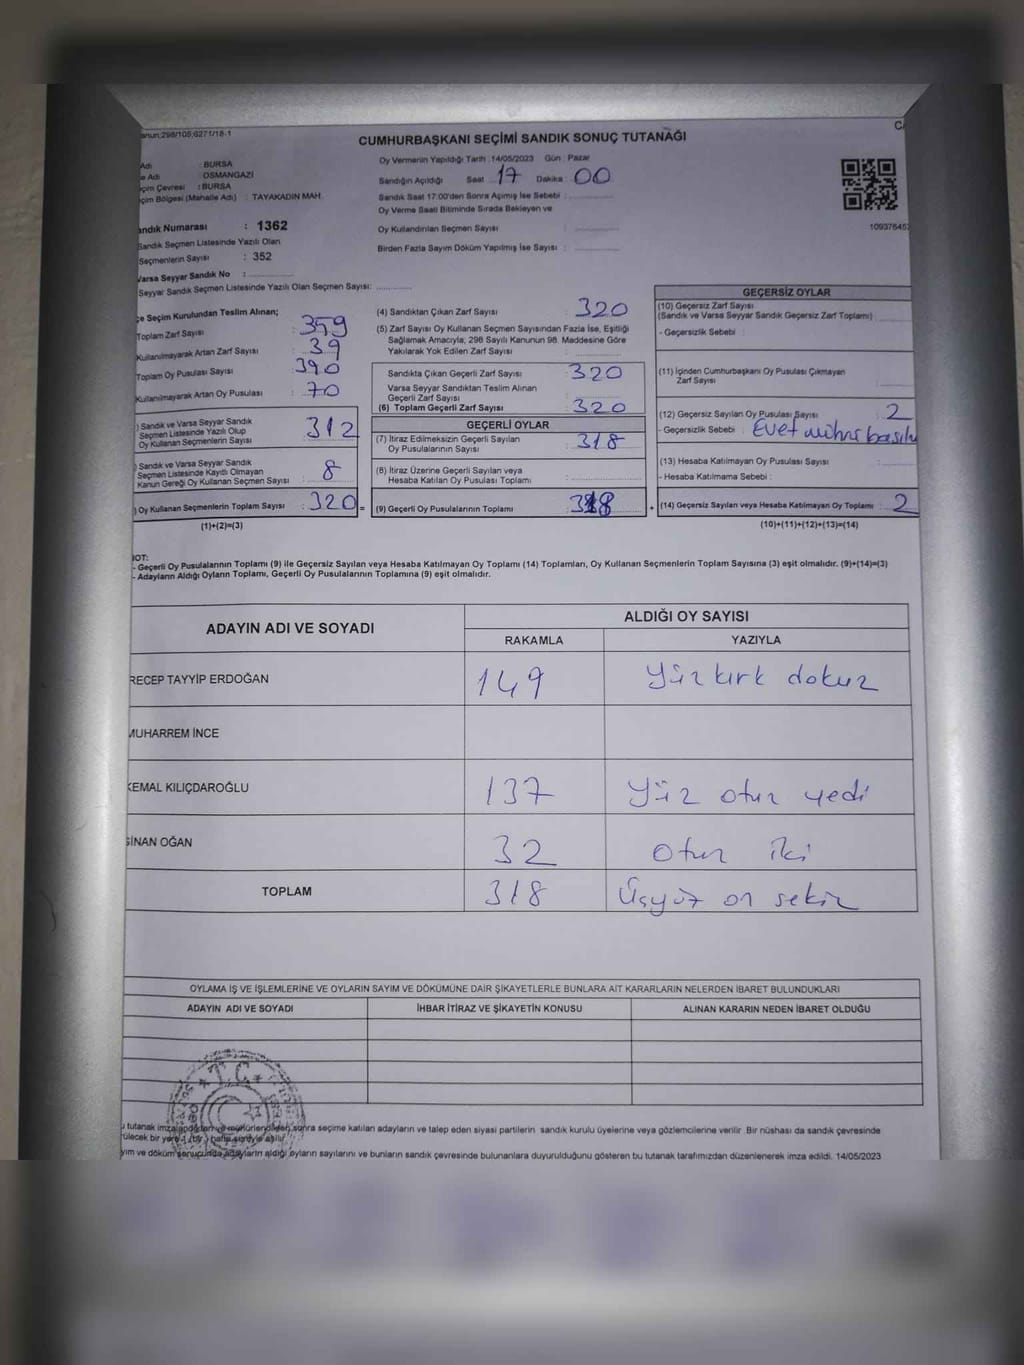 anun:298/105;6271/18-1
CUMHURBAŞKANI SEÇİMİ SANDIK SONUÇ TUTANAĞI
Adı : BURSA
e Adı : OSMANGAZİ
çim Çevresi : BURSA
çim Bölgesi (Mahalle Adı) : TAYAKADIN MAH.
andık Numarası : 1362
Sandık Seçmen Listesinde Yazılı Olan
Seçmenlerin Sayısı : 352
Varsa Seyyar Sandık No :
Seyyar Sandık Seçmen Listesinde Yazılı Olan Seçmen Sayısı:
Oy Vermenin Yapıldığı Tarih :14/05/2023 Gün : Pazar
Sandığın Açıldığı Saat : 17 Dakika : 00
Sandık Saat 17:00'den Sonra Açımış İse Sebebi :
Oy Verme Saati Bitiminde Sırada Bekleyen ve
Oy Kullandırılan Seçmen Sayısı :
Birden Fazla Sayım Döküm Yapılmış İse Sayısı :
10937645
çe Seçim Kurulundan Teslim Alınan;
Toplam Zarf Sayısı : 359
Kullanılmayarak Artan Zarf Sayısı : 39
Toplam Oy Pusulası Sayısı : 390
Kullanılmayarak Artan Oy Pusulası : 70
) Sandık ve Varsa Seyyar Sandık
Seçmen Listesinde Yazılı Olup
Oy Kullanan Seçmenlerin Sayısı : 312
) Sandık ve Varsa Seyyar Sandık
Seçmen Listesinde Kayıtlı Olmayan
Kanun Gereği Oy Kullanan Seçmen Sayısı : 8
) Oy Kullanan Seçmenlerin Toplam Sayısı : 320 =
(1)+(2)=(3)
(4) Sandıktan Çıkan Zarf Sayısı : 320
(5) Zarf Sayısı Oy Kullanan Seçmen Sayısından Fazla İse, Eşitliği
Sağlamak Amacıyla; 298 Sayılı Kanunun 98. Maddesine Göre
Yakılarak Yok Edilen Zarf Sayısı :
Sandıkta Çıkan Geçerli Zarf Sayısı : 320
Varsa Seyyar Sandıktan Teslim Alınan
Geçerli Zarf Sayısı :
(6) Toplam Geçerli Zarf Sayısı : 320
GEÇERLİ OYLAR
(7) İtiraz Edilmeksizin Geçerli Sayılan
Oy Pusulalarının Sayısı : 318
(8) İtiraz Üzerine Geçerli Sayılan veya
Hesaba Katılan Oy Pusulası Toplamı :
(9) Geçerli Oy Pusulalarının Toplamı : 318 +
GEÇERSİZ OYLAR
(10) Geçersiz Zarf Sayısı
(Sandık ve Varsa Seyyar Sandık Geçersiz Zarf Toplamı) :
- Geçersizlik Sebebi :
(11) İçinden Cumhurbaşkanı Oy Pusulası Çıkmayan
Zarf Sayısı :
(12) Geçersiz Sayılan Oy Pusulası Sayısı : 2
- Geçersizlik Sebebi : Evet mührü
(13) Hesaba Katılmayan Oy Pusulası Sayısı :
- Hesaba Katılmama Sebebi :
(14) Geçersiz Sayılan veya Hesaba Katılmayan Oy Toplamı : 2
(10)+(11)+(12)+(13)=(14)
NOT:
- Geçerli Oy Pusulalarının Toplamı (9) ile Geçersiz Sayılan veya Hesaba Katılmayan Oy Toplamı (14) Toplamları, Oy Kullanan Seçmenlerin Toplam Sayısına (3) eşit olmalıdır. (9)+(14)=(3)
- Adayların Aldığı Oyların Toplamı, Geçerli Oy Pusulalarının Toplamına (9) eşit olmalıdır.
ADAYIN ADI VE SOYADI
ALDIĞI OY SAYISI
RAKAMLA YAZIYLA
RECEP TAYYİP ERDOĞAN 149 Yüz kırk dokuz
MUHARREM İNCE
KEMAL KILIÇDAROĞLU 137 Yüz otuz yedi
SİNAN OĞAN 32 Otuz iki
TOPLAM 318 Üçyüz on sekiz
OYLAMA İŞ VE İŞLEMLERİNE VE OYLARIN SAYIM VE DÖKÜMÜNE DAİR ŞİKAYETLERLE BUNLARA AİT KARARLARIN NELERDEN İBARET BULUNDUKLARI
ADAYIN ADI VE SOYADI İHBAR İTİRAZ VE ŞİKAYETİN KONUSU ALINAN KARARIN NEDEN İBARET OLDUĞU
T.C.
u tutanak sonra seçime katılan adayların ve talep eden siyasi partilerin sandık kurulu üyelerine veya gözlemcilerine verilir. Bir nüshası da sandık çevresinde
ülecek bir yere 1 (bir) hafta süreyle asılır.
yım ve döküm sonucunda adayların aldığı oyların sayılarını ve bunların sandık çevresinde bulunanlara duyurulduğunu gösteren bu tutanak tarafımızdan düzenlenerek imza edildi. 14/05/2023